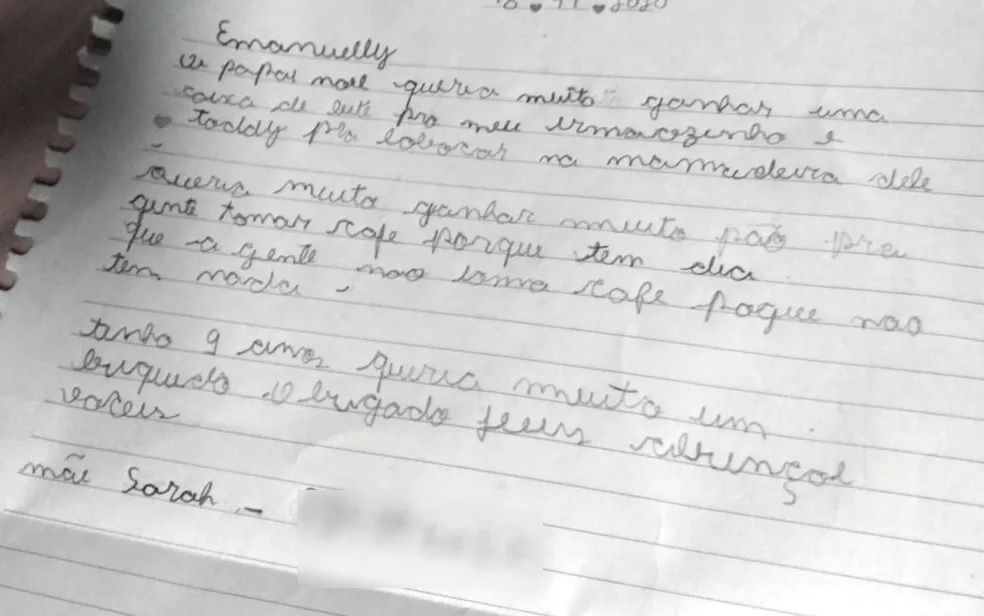 ♥ 11 ♥ 2020
Emanuelly
papai noel queria muito ganhar uma
caixa de leite pro meu irmaozinho e
♥ toddy pra colocar na mamadeira dele
queria muito ganhar muito pão pra
gente tomar cafe porque tem dia
que a gente nao toma cafe poque nao
tem nada,
tenho 9 anos queria muito um
briquedo obrigado jeus abençoe
voceis
mãe Sarah -